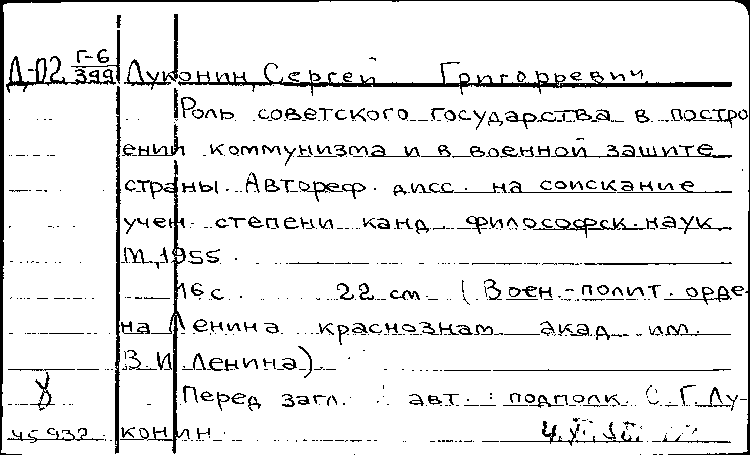 Д-02 Г-6/399 Луконин, Сергей Григорревич
Роль советского государства в постро
ении коммунизма и в военной зашите
страны. Автореф. дисс. на соискание
учен. степени канд. философск. наук
М., 1955.
16 с. 22 см. (Воен.-полит. орде-
на Ленина краснознам акад им.
В. И. Ленина)
Перед загл. авт.: подполк. С. Г. Лу-
45932 конин.